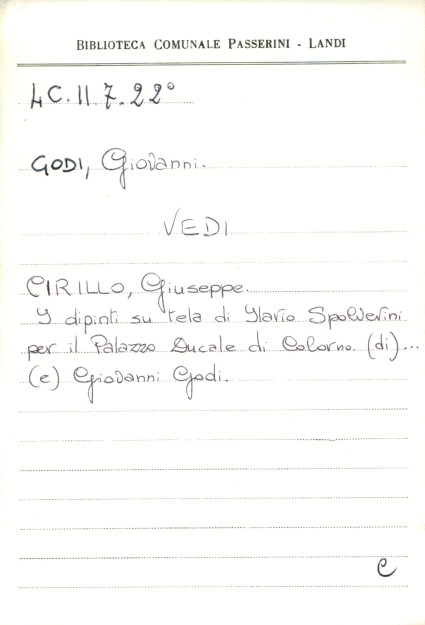 BIBLIOTECA COMUNALE PASSERINI - LANDI
LC. II. 7. 22°
GODI, Giovanni.
VEDI
CIRILLO, Giuseppe.
I dipinti su tela di Ilario Spolverini
per il Palazzo Ducale di Colorno. (di)...
(e) Giovanni Godi.
C